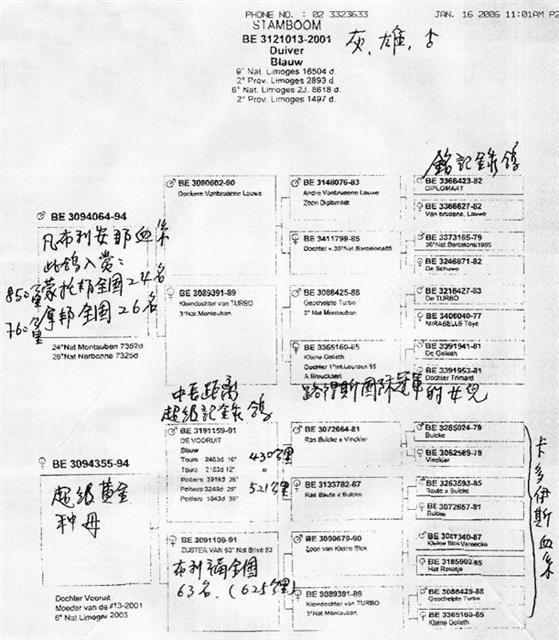 PHONE NO. : 02 3323633
JAN. 16 2006 11:01AM P2
STAMBOOM
BE 3121013-2001
Duiver
Blauw
灰.雄.
9° Nat. Limoges 16504 d.
2° Prov. Limoges 2893 d.
6° Nat. Limoges 2J. 8618 d.
2° Prov. Limoges 1497 d.
銘記錄鴿
♂ BE 3094064-94
凡布利安那血系
此鴿入赏:
850公里蒙托邦全国24名
760公里拿邦全国26名
24°Nat Montauban 7352d
26°Nat Nerbonne 7325d
♂ BE 3090602-90
Donkere Vanbruaene Lauwe
♀ BE 3089391-89
Kleindochter van TURBO
3°Nat.Montauban
♂ BE 3148076-83
Andre Vanbruaene Lauwe
Zoon Diplomaat
♀ BE 3411799-85
Dochter v.36°Nat Barcelona85
♂ BE 3088425-88
Geschelpte Turbo
3° Nat Montauban
♀ BE 3365160-85
Kleine Goliath
Dochter 1°Int.Lourdes 85
A Brouckaert
♂ BE 3366423-82
DIPLOMAAT
♀ BE 3366627-82
Van bruaene, Lauwe
♂ BE 3373165-79
36°Nat Barcelona1985
♀ BE 3246871-82
De Schuwe
♂ BE 3216427-83
De TURBO
♀ BE 3406040-77
MIRABELLE Toye
♂ BE 3391941-81
De Goliath
♀ BE 3391953-81
Dochter Trimard
中長距离
超級記錄鴿
路得斯国际冠軍的女兒
♀ BE 3094355-94
超級黄金
种母
Dochter Vooruit
Moeder van de #13-2001
6° Nat Limoges 2003
♂ BE 3191159-91
DE VOORUIT
Blauw
Tours 2463d 16°
430公里
Tours 2163d 12°
〃
Poitiers 3918d 36°
Poitiers 3249d 25°
521公里
Poitiers 1843d 39°
♀ BE 3091109-91
ZUSTER VAN 63° Nat Brive 93
布利福全国
63名.(625公里)
♂ BE 3072664-81
Ras Bulcke x Vinckier
♀ BE 3133782-87
Ras Baute x Bulcke
♂ BE 3090679-90
Zoon van Kleine Blok
♀ BE 3089391-89
Kleindochter van TURBO
3° Nat Montauban
♂ BE 3285024-79
Bulcke
♀ BE 3062589-78
Vinckier
♂ BE 3263593-85
Baute x Bulcke
♀ BE 3072657-81
Bulcke
♂ BE 3047340-87
Kleine Blok Vereecke
♀ BE 3185902-85
Het Raketje
♂ BE 3088425-88
Geschelpte Turbo
♀ BE 3365160-85
Kleine Goliath
卡多伊斯血系